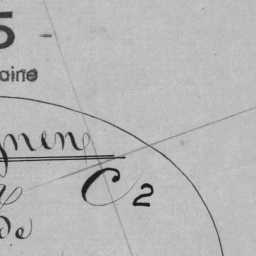 5 -
aine
gnen
C2
de